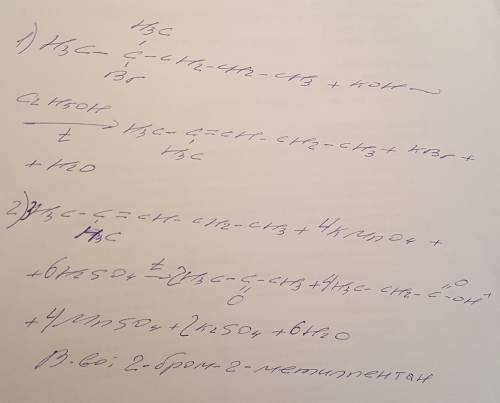 H3C
1) H3C - C - CH2 - CH2 - CH3 + KOH
Br
C2H5OH
t
H3C - C = CH - CH2 - CH3 + KBr +
H3C
+ H2O
2) H3C - C = CH - CH2 - CH3 + 4KMnO4 +
H3C
+ 6H2SO4 t → 2H3C - C - CH3 + 4H3C - CH2 - C = O OH +
O
+ 4MnSO4 + 2K2SO4 + 6H2O
В-во: 2-бром-2-метилпентан